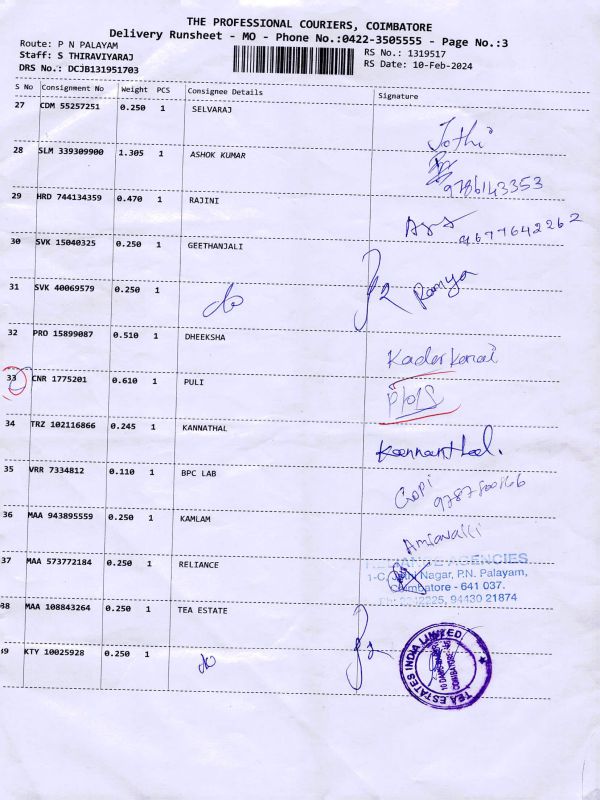 THE PROFESSIONAL COURIERS, COIMBATORE
Delivery Runsheet - MO - Phone No.:0422-3505555 - Page No.:3
Route: P N PALAYAM
Staff: S THIRAVIYARAJ
DRS No.: DCJB131951703
RS No.: 1319517
RS Date: 10-Feb-2024
S No Consignment No Weight PCS Consignee Details Signature
27 CDM 55257251 0.250 1 SELVARAJ
Jothi
28 SLM 339309900 1.305 1 ASHOK KUMAR
9786143353
29 HRD 744134359 0.470 1 RAJINI
9677642262
30 SVK 15040325 0.250 1 GEETHANJALI
Ramya
31 SVK 40069579 0.250 1 do
32 PRO 15899087 0.510 1 DHEEKSHA
33 CNR 1775201 0.610 1 PULI
34 TRZ 102116866 0.245 1 KANNATHAL
35 VRR 7334812 0.110 1 BPC LAB
Gopi
36 MAA 943895559 0.250 1 KAMLAM
37 MAA 573772184 0.250 1 RELIANCE
RELIANCE AGENCIES
Nagar, P.N. Palayam,
Coimbatore - 641 037.
94430 21874
38 MAA 108843264 0.250 1 TEA ESTATE
49 KTY 10025928 0.250 1 do
TEA ESTATES INDIA LIMITED